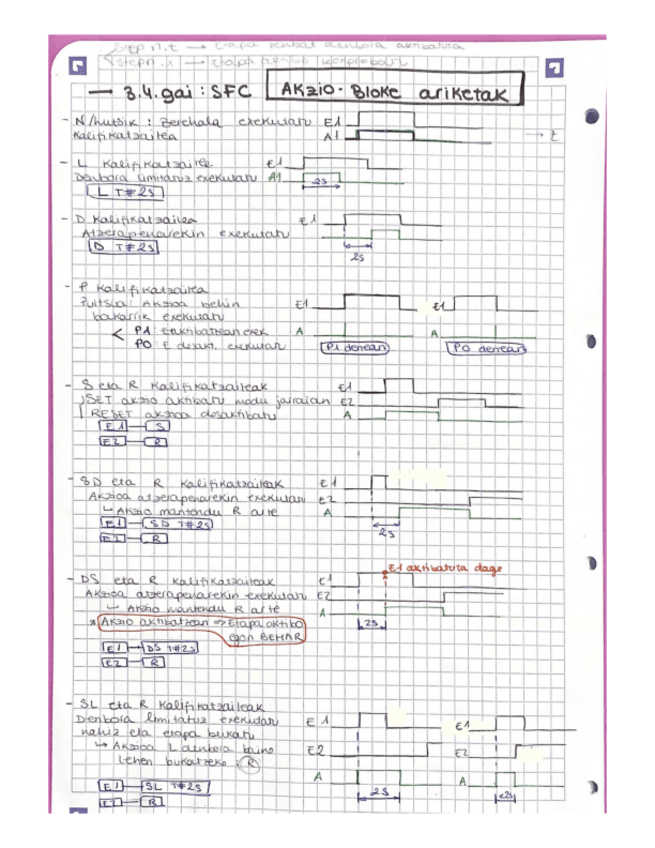 Step n.t → Etapa zenbat denbora aktibatuta
Stepn.x → etapa aktibo
→ 3.4.gai : SFC AKzio-Bloke ariketak
- N/hutsik : Berehala exekutatu E1
Kalifikatzailea A1 → t
- L Kalifikatzailea E1
Denbora limitatuz exekutatu A1 2s
L T#2s
- D Kalifikatzailea E1
Atzerapenarekin exekutatu
D T#2s 2s
- P Kalifikatzailea
Pultsua: Akzioa behin E1 E1
bakarrik exekutatu
P1: E aktibatzean exek A A
P0: E desakt. exekutatu P1 denean P0 denean
- S eta R Kalifikatzaileak E1
SET akzio aktibatu modu jarraian E2
RESET akzioa desaktibatu A
E1 S
E2 R
- SD eta R Kalifikatzaileak E1
Akzioa atzerapenarekin exekutatu E2
↳ Akzio mantendu R arte A
E1 SD T#2s 2s
E2 R
E1 aktibatuta dago
- DS eta R Kalifikatzaileak E1
Akzioa atzerapenarekin exekutatu E2
↳ Akzio mantendu R arte A
* Akzio aktibatzean ⇒ Etapa aktibo 2s
egon BEHAR
E1 DS T#2s
E2 R
- SL eta R Kalifikatzaileak
Denbora limitatuz exekutatu E1 E1
nahiz eta etapa bukatu
↳ Akzioa L denbora baino E2 E2
lehen bukatzeko : R
A A
E1 SL T#2s 2s <2s
E2 R